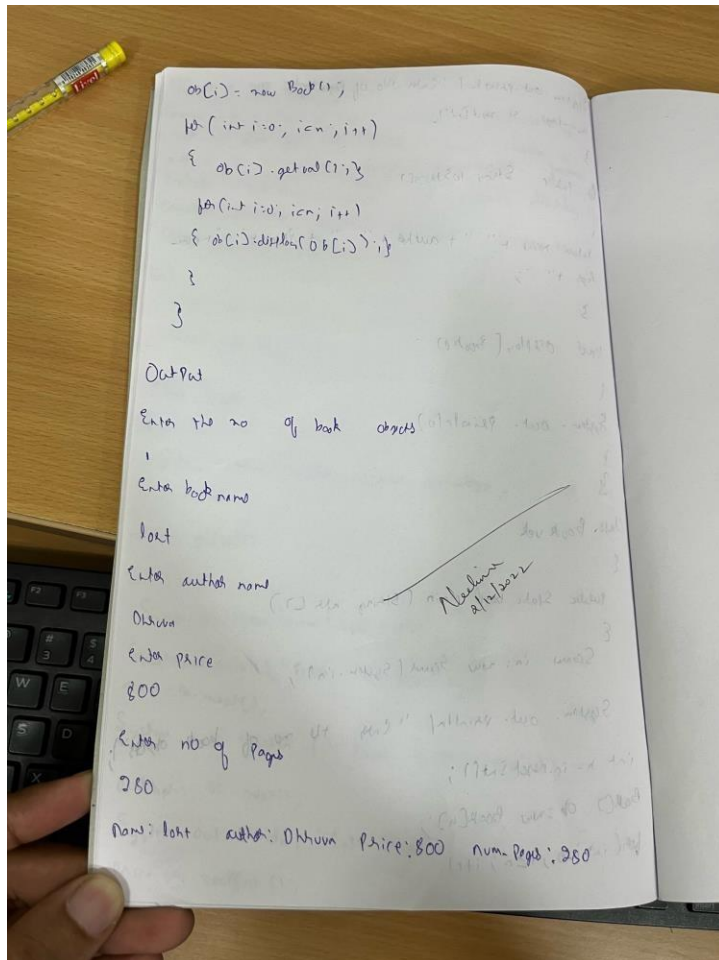 ob[i] = new Book();
for( int i=0; i<n; i++)
{ ob[i].getval();}
for(int i=0; i<n; i++)
{ ob[i].display(ob[i]);}
}
}
OutPut
Enter the no of book objects
1
Enter book name
lost
Enter author name
Dhruva
Enter price
800
Enter no of Pages
280
Name: lost author: Dhruva Price: 800 num-Pages: 280
2/12/2022